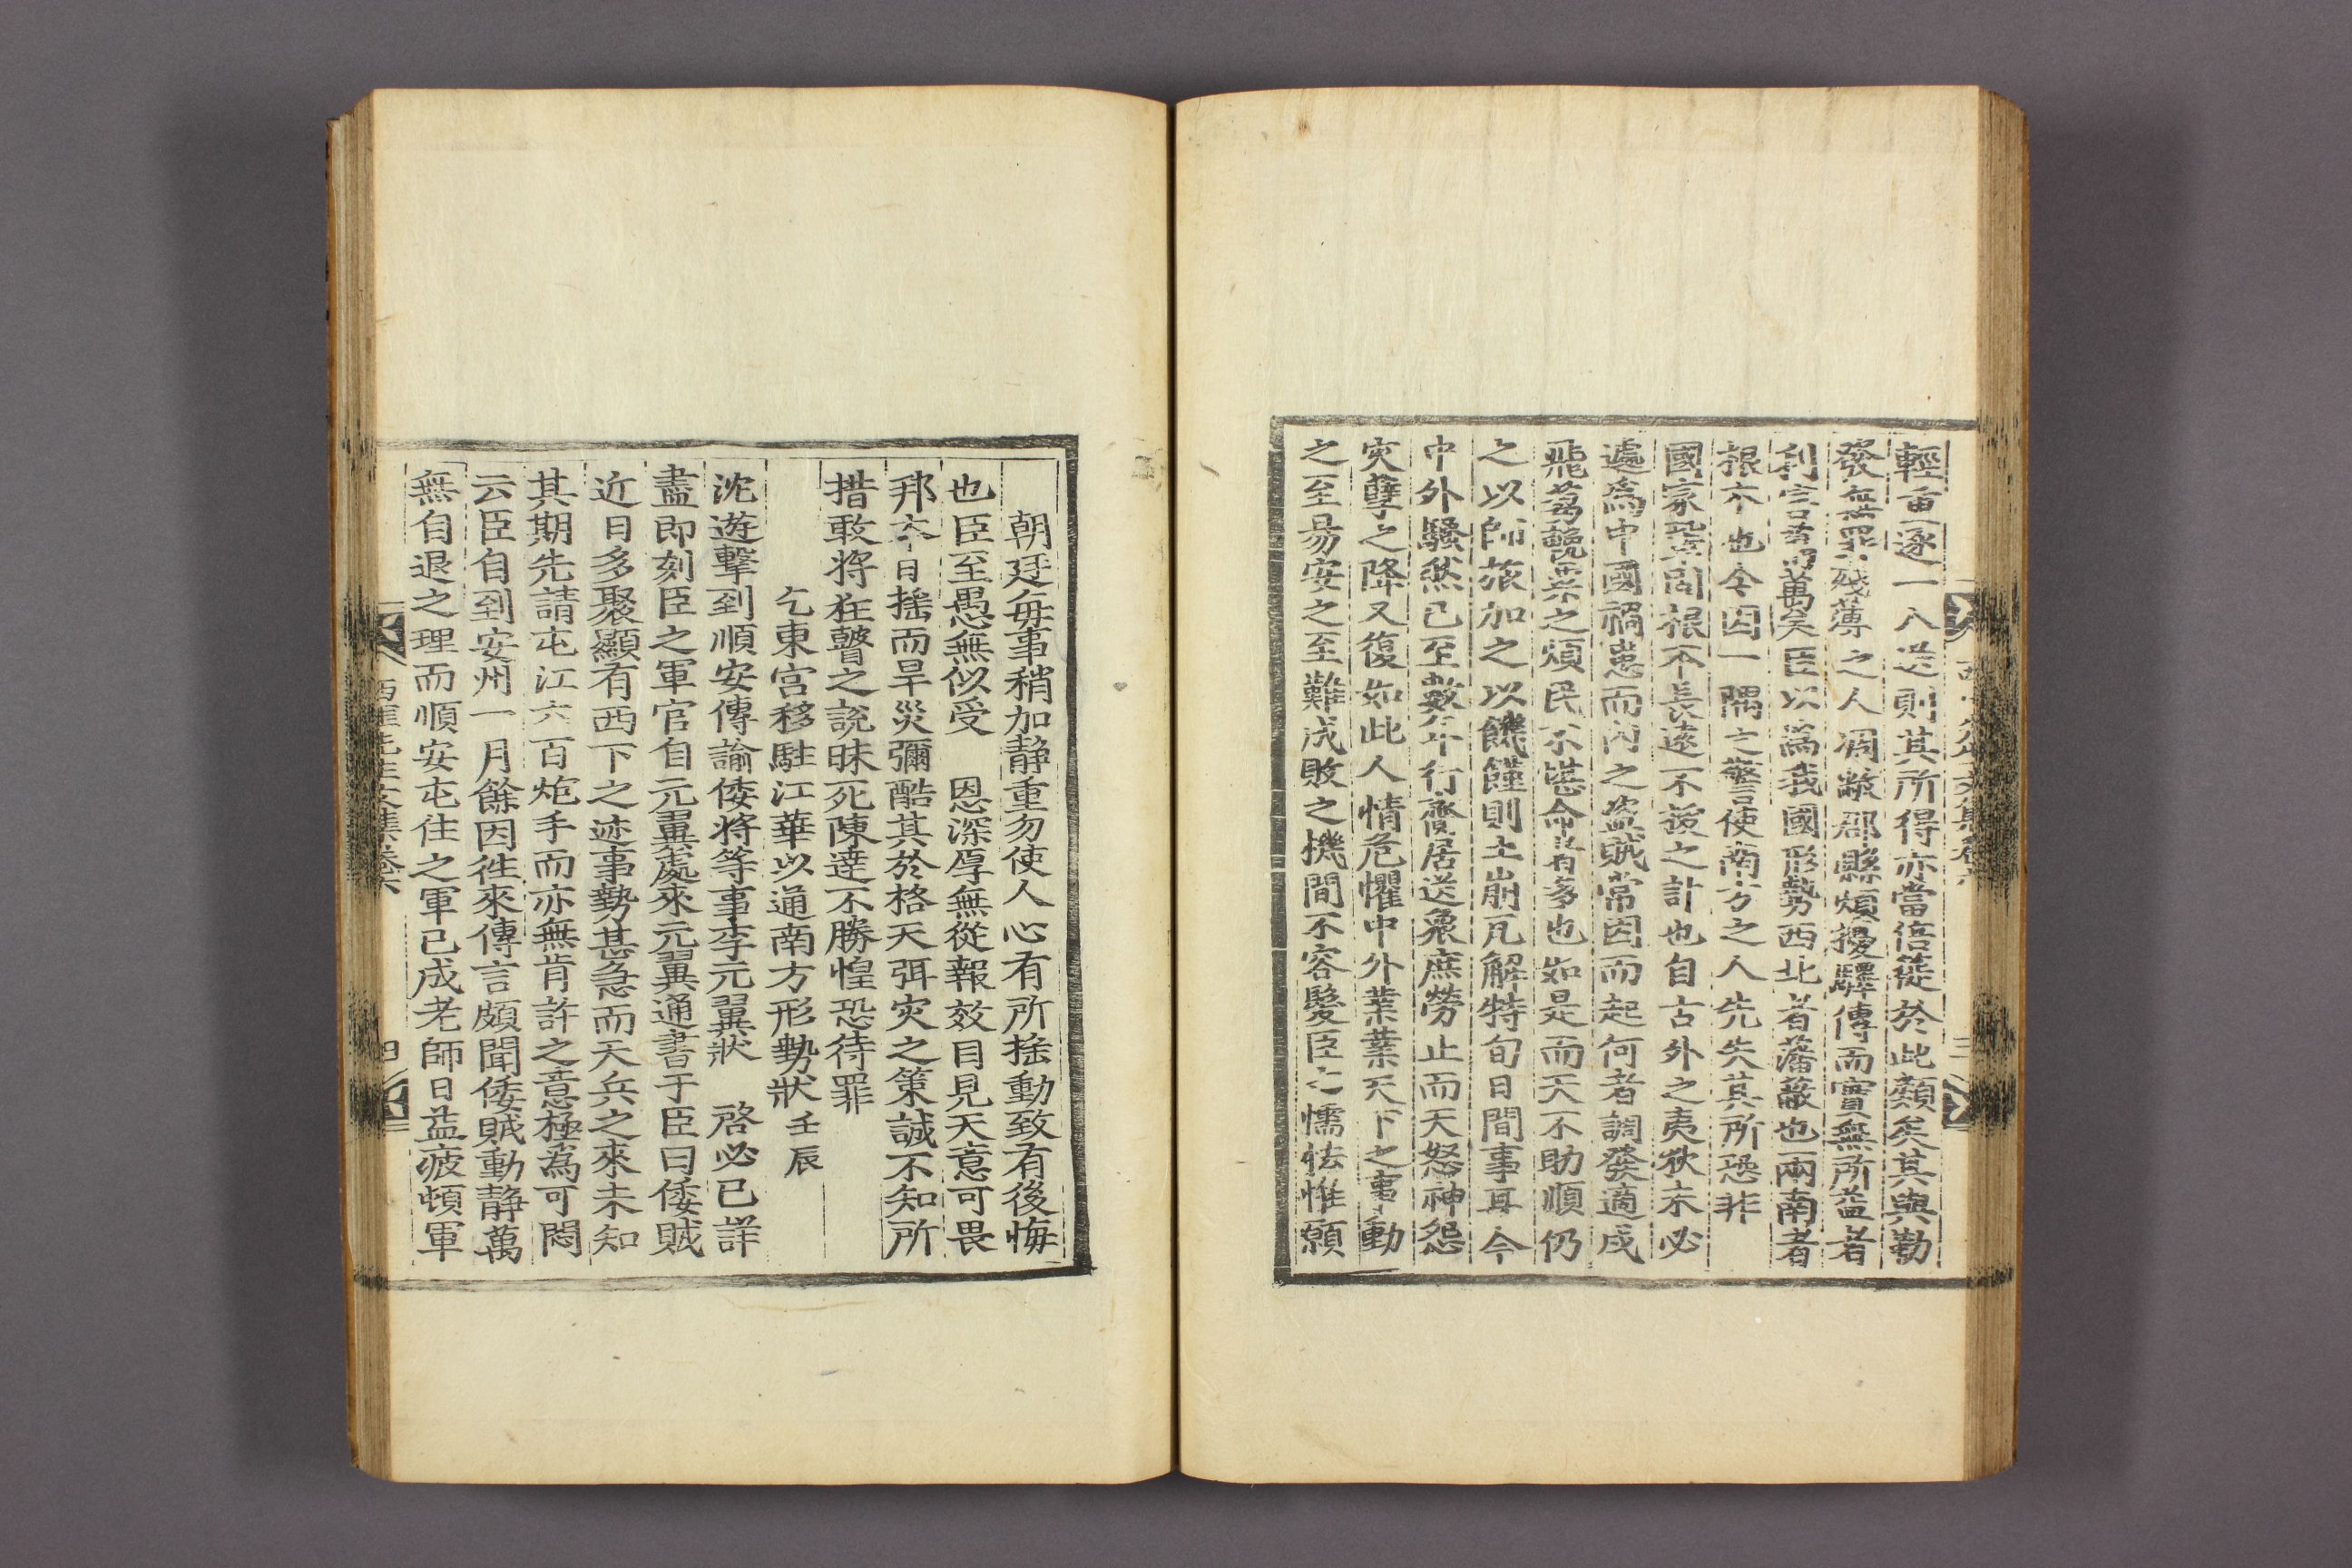 輕重逐一入送則其所得亦當倍蓰於此類矣其與勒
發無罪殘薄之人凋敝郡縣煩擾驛傳而實無所益者
利害相萬矣臣以爲我國形勢西北者藩蔽也兩南者
根本也今因一隅之警使南方之人先失其所恐非
國家鞏固根本長遠不拔之計也自古外之夷狄未必
遽爲中國禍患而內之盜賊常因而起何者調發適戍
飛芻輓粟之煩民不堪命者多也如是而天不助順仍
之以師旅加之以饑饉則土崩瓦解特旬日間事耳今
中外騷然已至數年行齎居送衆庶勞止而天怒神怨
灾孽之降又復如此人情危懼中外業業天下之事動
之至易安之至難成敗之機間不容髮臣之懦怯惟願
西厓先生文集卷六 三
朝廷每事稍加靜重勿使人心有所搖動致有後悔
也臣至愚無似受 恩深厚無從報效目見天意可畏
邦本日搖而旱災彌酷其於格天弭灾之策誠不知所
措敢將狂瞽之說昧死陳達不勝惶恐待罪
乞東宮移駐江華以通南方形勢狀 壬辰
沈遊擊到順安傳諭倭將等事李元翼狀 啓必已詳
盡卽刻臣之軍官自元翼處來元翼通書于臣曰倭賊
近日多聚顯有西下之迹事勢甚急而天兵之來未知
其期先請屯江六百炮手而亦無肯許之意極爲可悶
云臣自到安州一月餘因徃來傳言頗聞倭賊動靜萬
無自退之理而順安屯住之軍已成老師日益疲頓軍
西厓先生文集卷六 四